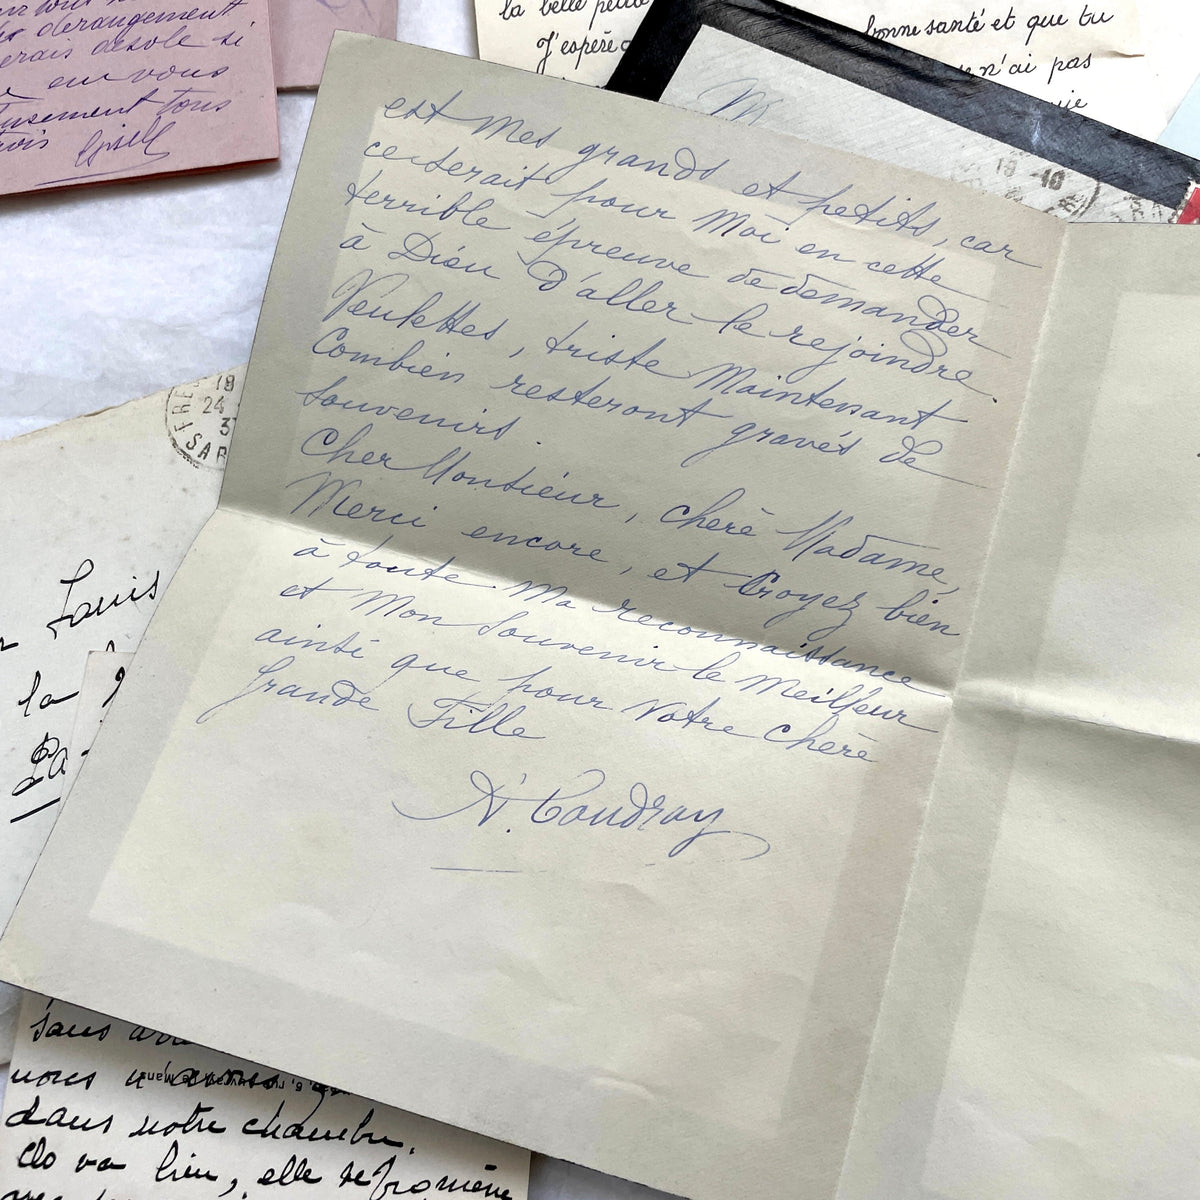 dérangement
désolé si
en vous
tous
Gisèle
la belle
J'espère
bonne santé et que tu
n'ai pas
19 -10
est mes grands et petits, car
ce serait pour Moi en cette
terrible épreuve de demander
à Dieu d'aller le rejoindre
Veulettes, triste Maintenant
Combien resteront gravés de
souvenirs.
Cher Monsieur, chère Madame,
Merci encore, et Croyez bien
à toute Ma reconnaissance
et Mon Souvenir le Meilleur
ainsi que pour Votre Chère
Grande Fille
A. Coudray
18
24
3
SAR
Louis
la
La
sans
nous
dans notre chambre.
va bien, elle se promène